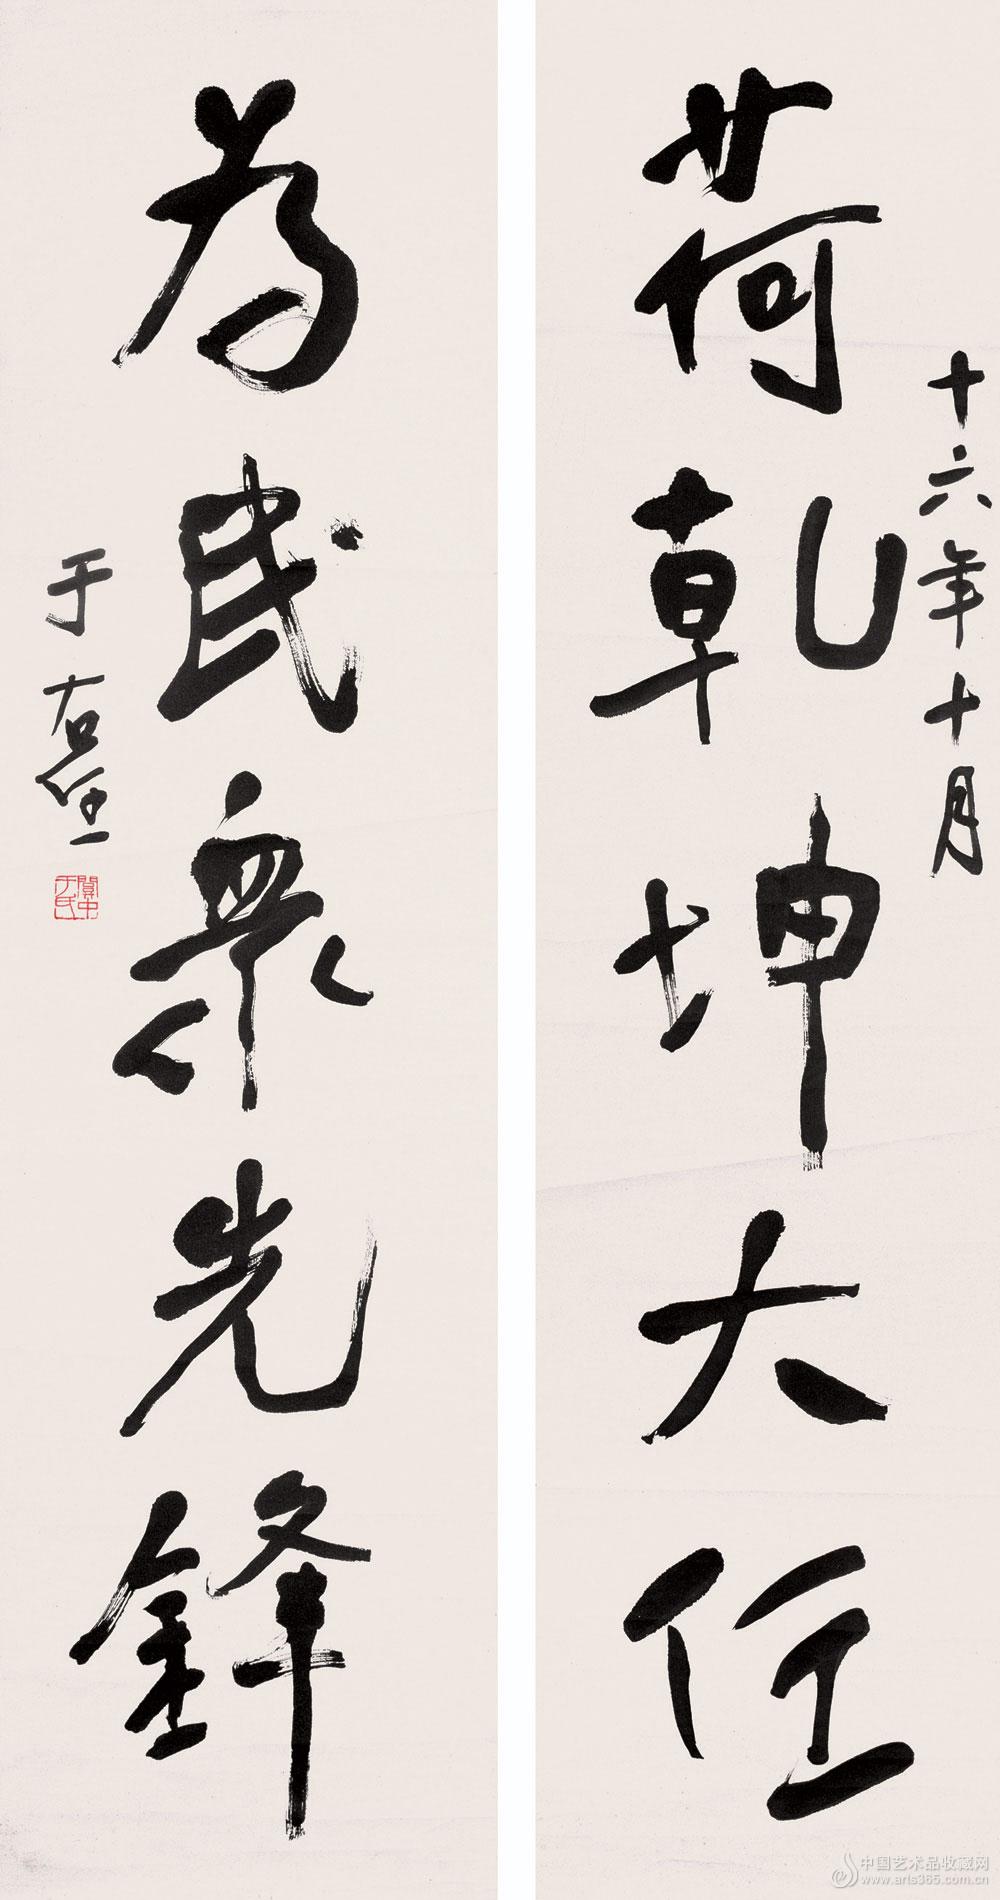 荷乾坤大任
十六年十月
為民衆先鋒
于右任
關中于氏
中国艺术品收藏网
www.arts365.com.cn